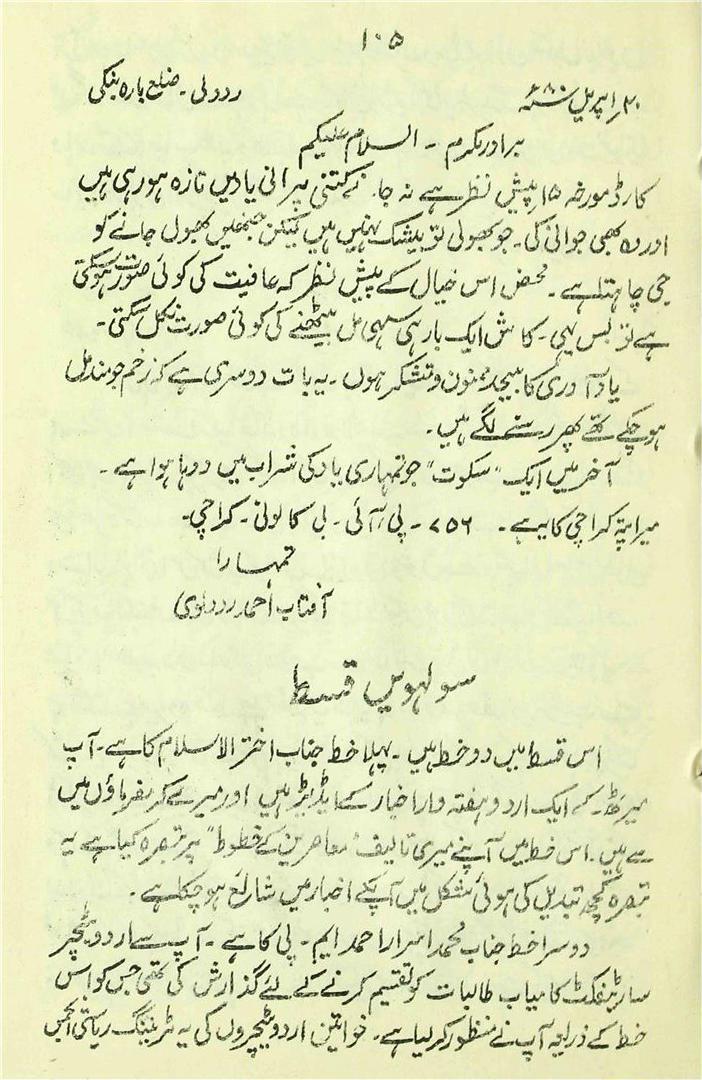 ۱۰۵
ردولی۔ ضلع بارہ بنکی
۲۰ اپریل ۸۰ء
برادر مکرم ۔ السلام علیکم
کارڈ مورخہ ۱۵ پیش نظر ہے نہ جا نے کتنی پرانی یادیں تازہ ہو رہی ہیں
اور وہ بھی جوانی کی۔ جو بھولی تو بیشک نہیں ہیں لیکن جنھیں بھول جانے کو
جی چاہتا ہے۔ محض اس خیال کے پیش نظر کہ عافیت کی کوئی صورت ہو سکتی
ہے تو بس یہی۔ کاش ایک بار ہی سہی مل بیٹھنے کی کوئی صورت نکل سکتی۔
یاد آوری کا بیحد ممنون و متشکر ہوں۔ یہ بات دوسری ہے کہ زخم جو مندمل
ہو چکے تھے پھر رسنے لگے ہیں۔
آخر میں ایک "سکوت" جو تمہاری یاد کی شراب میں دوہا ہوا ہے۔
میرا پتہ کراچی کا یہ ہے۔ ۷۵۶ ۔ پی۔ آئی۔ بی کالونی۔ کراچی۔
تمہارا
آفتاب احمد ردولوی
سولہویں قسط
اس قسط میں دو خط ہیں۔ پہلا خط جناب اختر الاسلام کا ہے۔ آپ
میرٹھ کے ایک اردو ہفتہ وار اخبار کے ایڈیٹر ہیں اور میرے کرمفرماؤں میں
سے ہیں۔ اس خط میں آپنے میری تالیف "معاصرین کے خطوط" پر تبصرہ کیا ہے یہ
تبصرہ کچھ تبدیل کی ہوئی شکل میں آپکے اخبار میں شائع ہو چکا ہے۔
دوسرا خط جناب محمد اسرار احمد ایم۔ پی کا ہے۔ آپ سے اردو ٹیچر
سارٹیفکٹ کامیاب طالبات کو تقسیم کرنے کے لئے گذارش کی تھی جس کو اس
خط کے ذریعہ آپ نے منظور کر لیا ہے۔ خواتین اردو ٹیچروں کی یہ ٹریننگ ریاستی انجمن